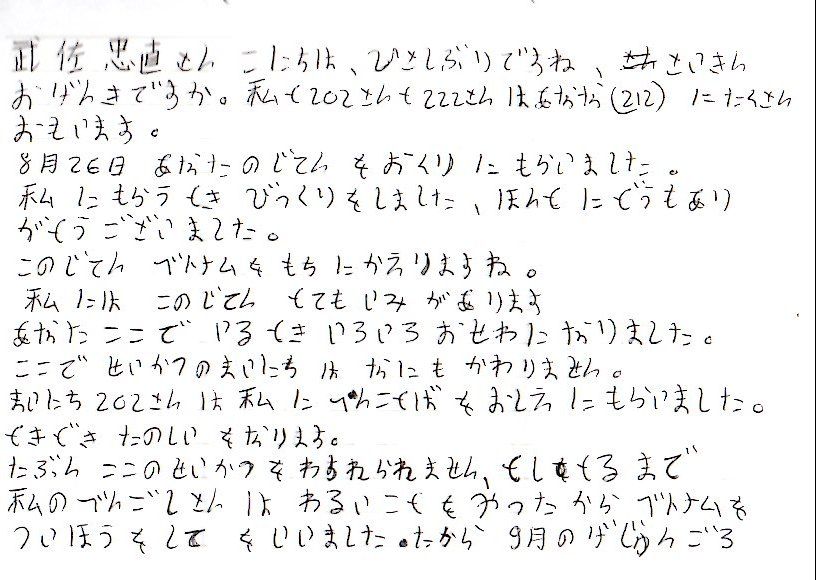 武佐忠直さん こにちは、ひさしぶりですね、さいきん
おげんきですか。私と202さんと222さんはあなな(212)にたくさん
おもいます。
8月26日 あなたのじてんをおくりにもらいました。
私にもらうとき びっくりをしました、ほんとにどうもあり
がとうございました。
このじてん ベトナムをもちにかえりますね。
私には このじてん とてもいみがあります
あなたここでいるときいろいろおせわになりました。
ここで せいかつのまいにちは なにもかわりません。
まいにち202さんは私に べんことばをおしえにもらいました。
ときどきたのしいをなります。
たぶん ここのせいかつをわすれられません、としをとるまで
私のべんごしさんは わるいことをやったから ベトナムを
ついほうをして をいいました。たから 9月のげじゅんごろ